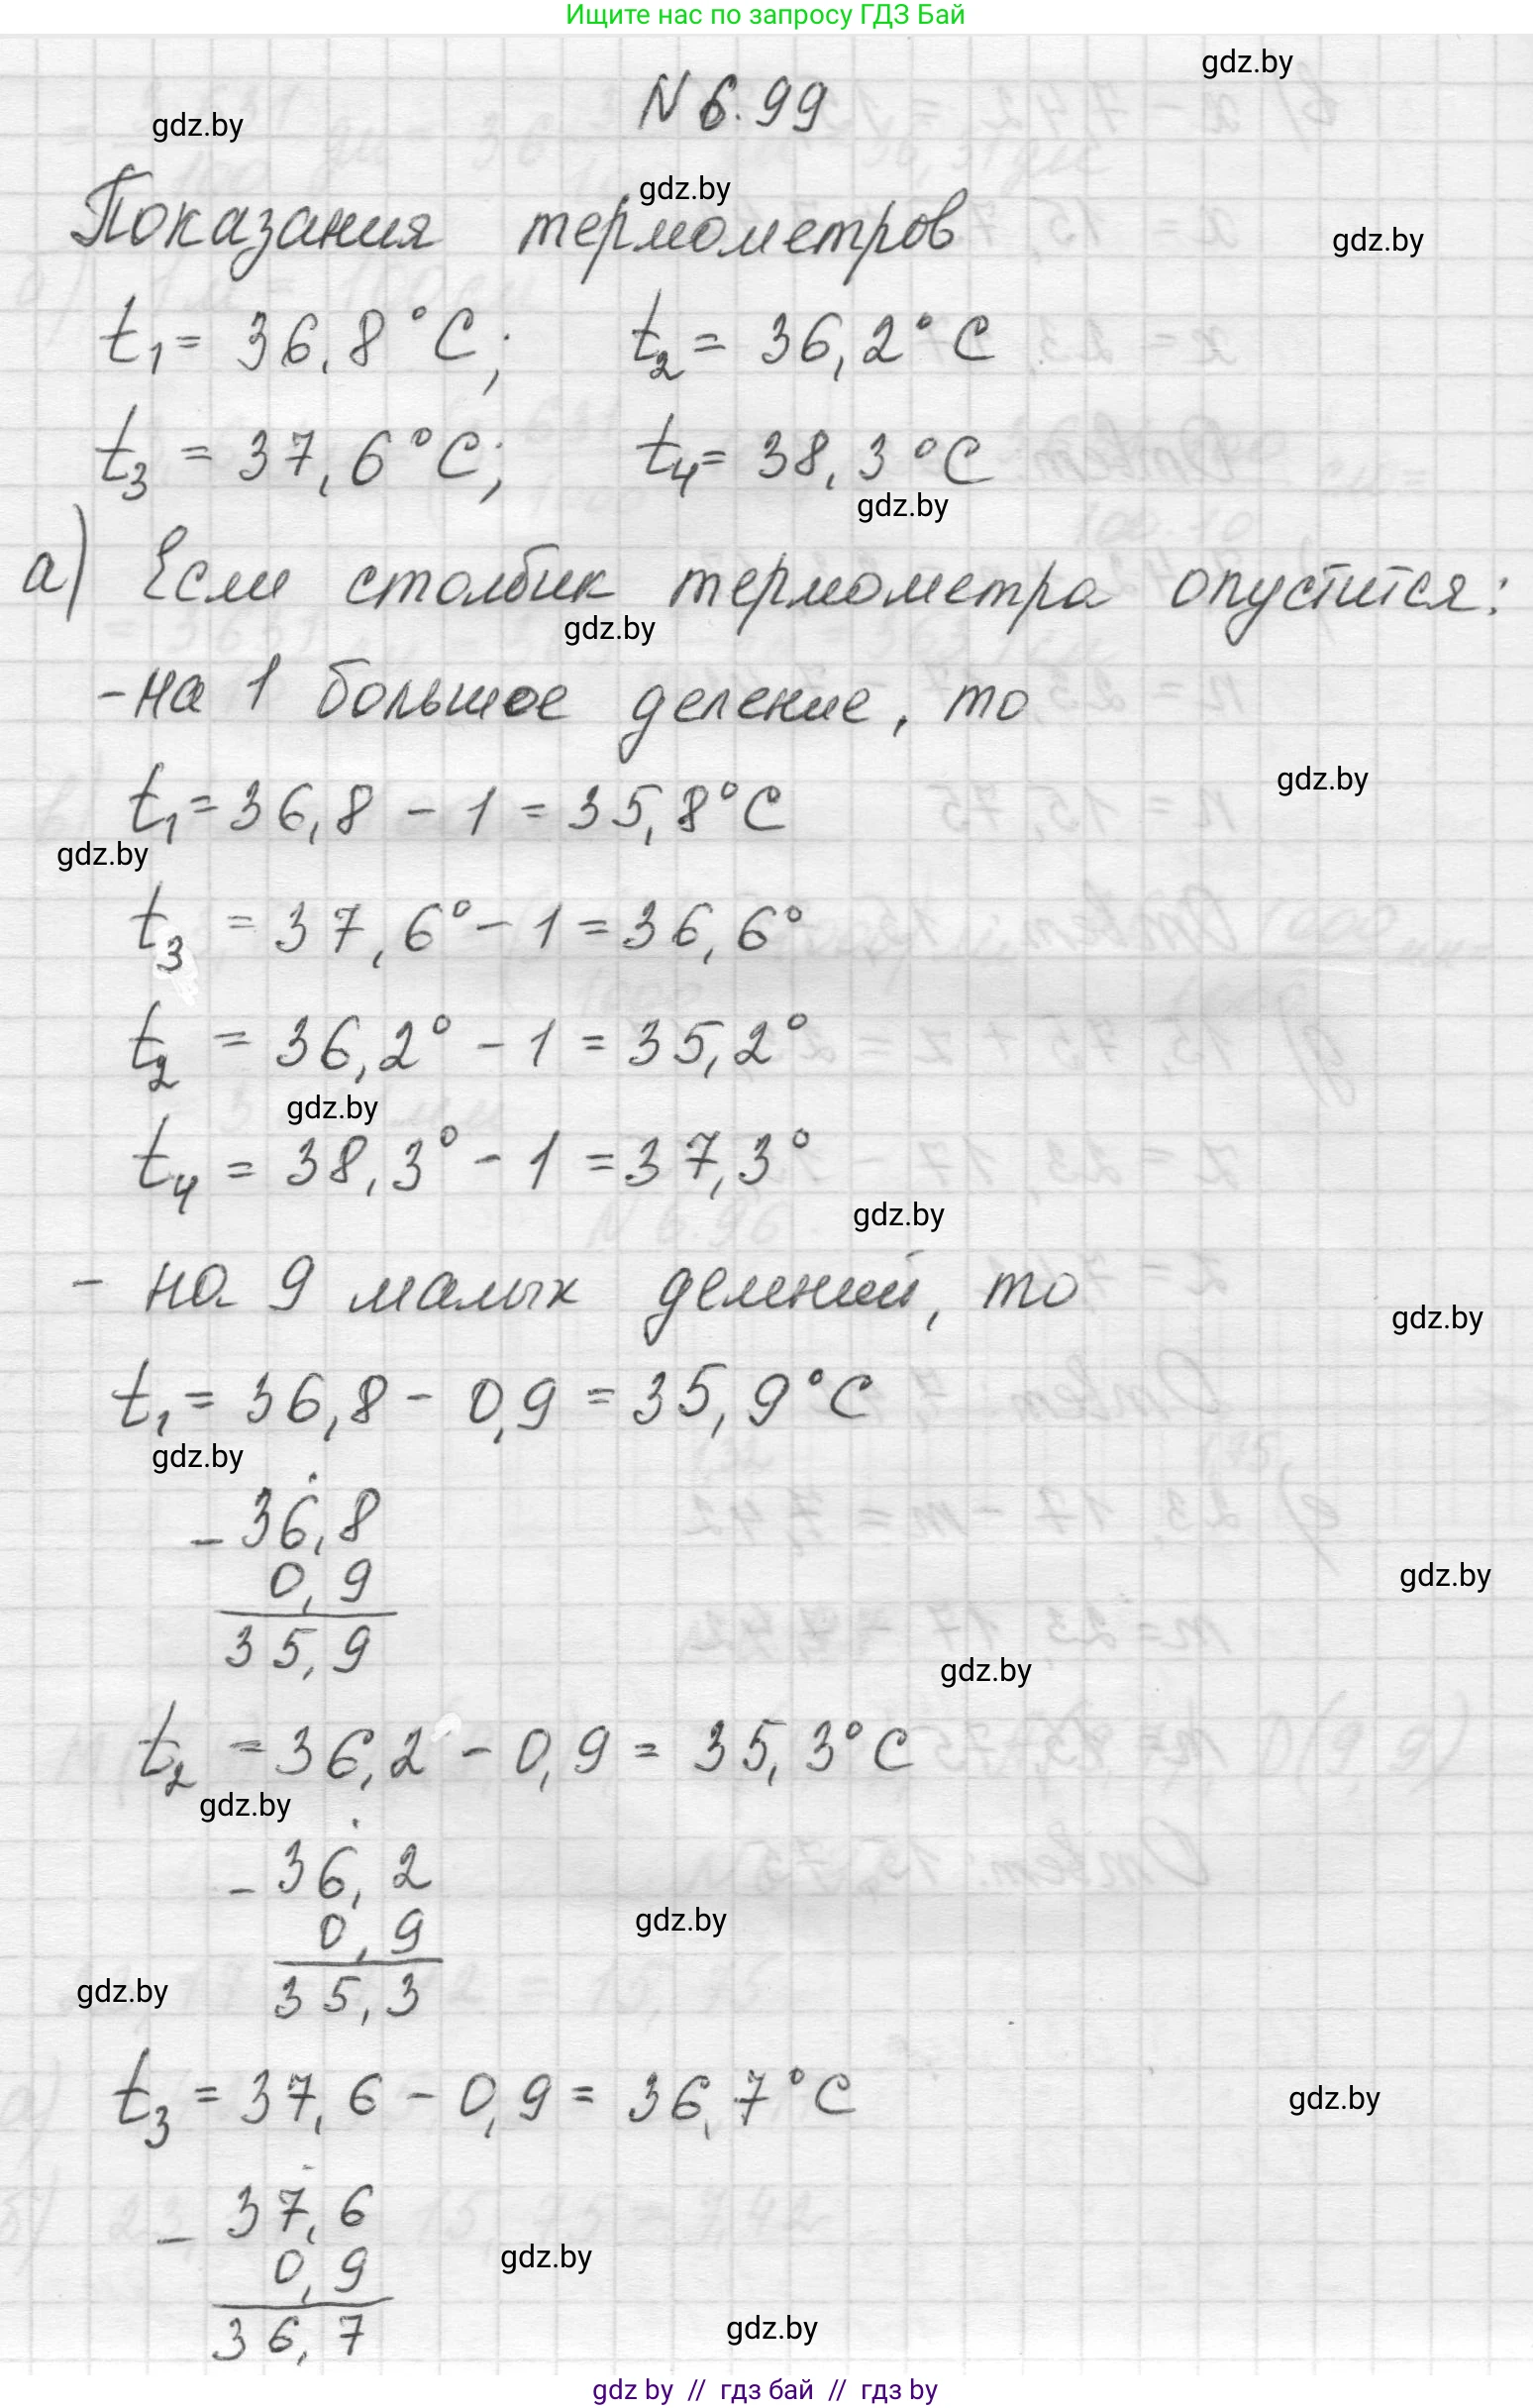 Ищите нас по запросу ГДЗ Бай
gdz.by
N 6.99
gdz.by
gdz.by
Показания термометров
gdz.by
t₁ = 36,8 °C; t₂ = 36,2° C
t₃ = 37,6°C; t₄ = 38,3 °C
gdz.by
а) Если столбик термометра опустится:
gdz.by
- на 1 большое деление, то
gdz.by
t₁ = 36,8 - 1 = 35,8°C
gdz.by
t₃ = 37,6° - 1 = 36,6°
t₂ = 36,2° - 1 = 35,2°
gdz.by
t₄ = 38,3° - 1 = 37,3°
gdz.by
- на 9 малых делений, то
gdz.by
t₁ = 36,8 - 0,9 = 35,9°C
gdz.by
- 36,8
0,9
35,9
gdz.by
gdz.by
t₂ = 36,2 - 0,9 = 35,3°C
gdz.by
- 36,2
0,9
35,3
gdz.by
gdz.by
t₃ = 37,6 - 0,9 = 36,7°C
gdz.by
- 37,6
0,9
36,7
gdz.by
gdz.by
gdz by // гдз бай // гдз by